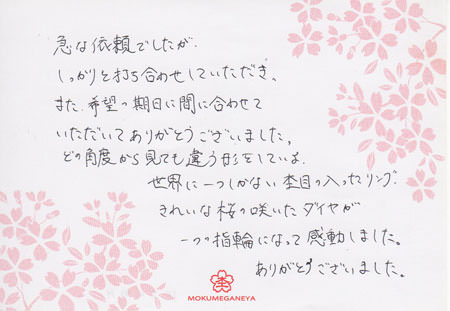 急な依頼でしたが、
しっかりと打ち合わせしていただき、
また、希望の期日に間に合わせて
いただいてありがとうございました。
どの角度から見ても違う形をしている、
世界に一つしかない杢目の入ったリング。
きれいな桜の咲いたダイヤが
一つの指輪になって感動しました。
ありがとうございました。
MOKUMEGANEYA